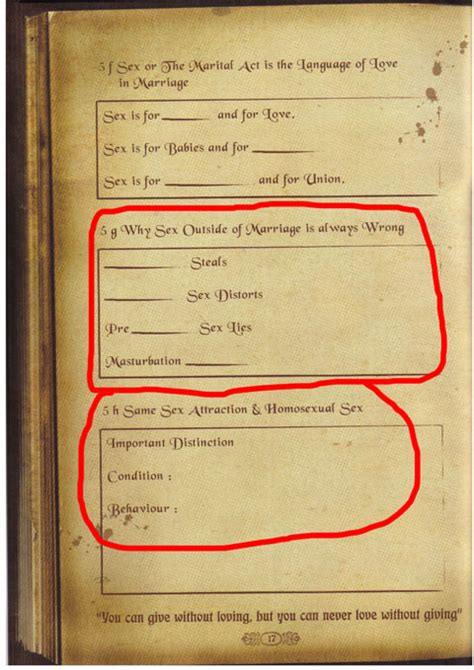 5 f Sex or The Marital Act is the Language of Love
in Marriage
Sex is for ________ and for Love.
Sex is for Babies and for ________
Sex is for ________ and for Union.
5 g Why Sex Outside of Marriage is always Wrong
________ Steals
________ Sex Distorts
Pre________ Sex Lies
Masturbation ________
5 h Same Sex Attraction & Homosexual Sex
Important Distinction
Condition :
Behaviour :
"You can give without loving, but you can never love without giving"
17